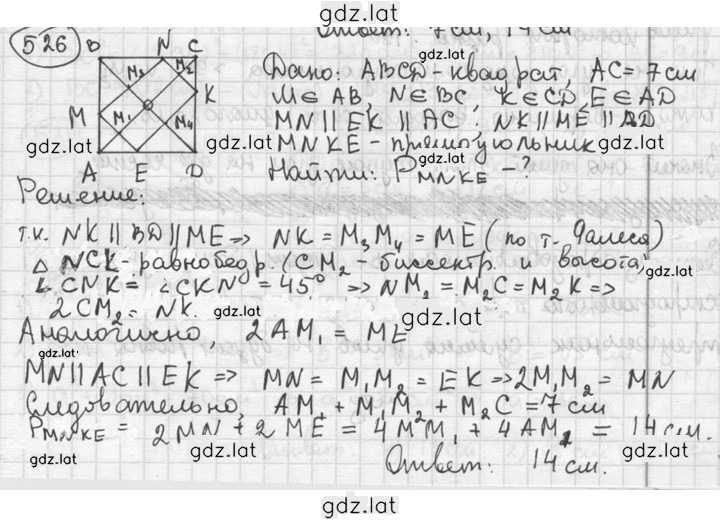 gdz.lat
Ответ: 7 см, 14 см
526
B N C
M₃ M₂
K
M M₁ M₄
A E D
gdz.lat
Дано: ABCD - квадрат, AC = 7 см
M ∈ AB, N ∈ BC, K ∈ CD, E ∈ AD
MN || EK || AC, NK || ME || BD
gdz.lat gdz.lat
MNKE - прямоугольник
gdz.lat
Найти: P MNKE - ?
Решение:
т.к. NK || BD || ME => NK = M₃M₄ = ME (по т. Фалеса)
△ NCK - равнобедр. (CM₂ - биссектр. и высота,
gdz.lat
∠CNK = ∠CKN = 45° => NM₂ = M₂C = M₂K =>
2CM₂ = NK.
gdz.lat
Аналогично, 2AM₁ = ME
gdz.lat
MN || AC || EK => MN = M₁M₂ = EK => 2M₁M₂ = MN
Следовательно, AM₁ + M₁M₂ + M₂C = 7 см
P MNKE = 2MN + 2ME = 4M₂M₁ + 4AM₁ = 14 см.
gdz.lat gdz.lat gdz.lat
Ответ: 14 см.
gdz.lat